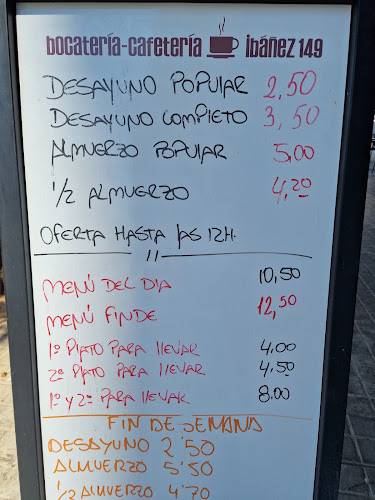 bocatería-cafetería ibáñez 149
DESAYUNO POPULAR 2,50
DESAYUNO COMPLETO 3,50
ALMUERZO POPULAR 5,00
1/2 ALMUERZO 4,20
OFERTA HASTA LAS 12H.
MENÚ DEL DIA 10,50
MENÚ FINDE 12,50
1º PLATO PARA LLEVAR 4.00
2º PLATO PARA LLEVAR 4.50
1º Y 2º PARA LLEVAR 8.00
FIN DE SEMANA
DESAYUNO 2'50
ALMUERZO 5'50
1/2 ALMUERZO 4'70